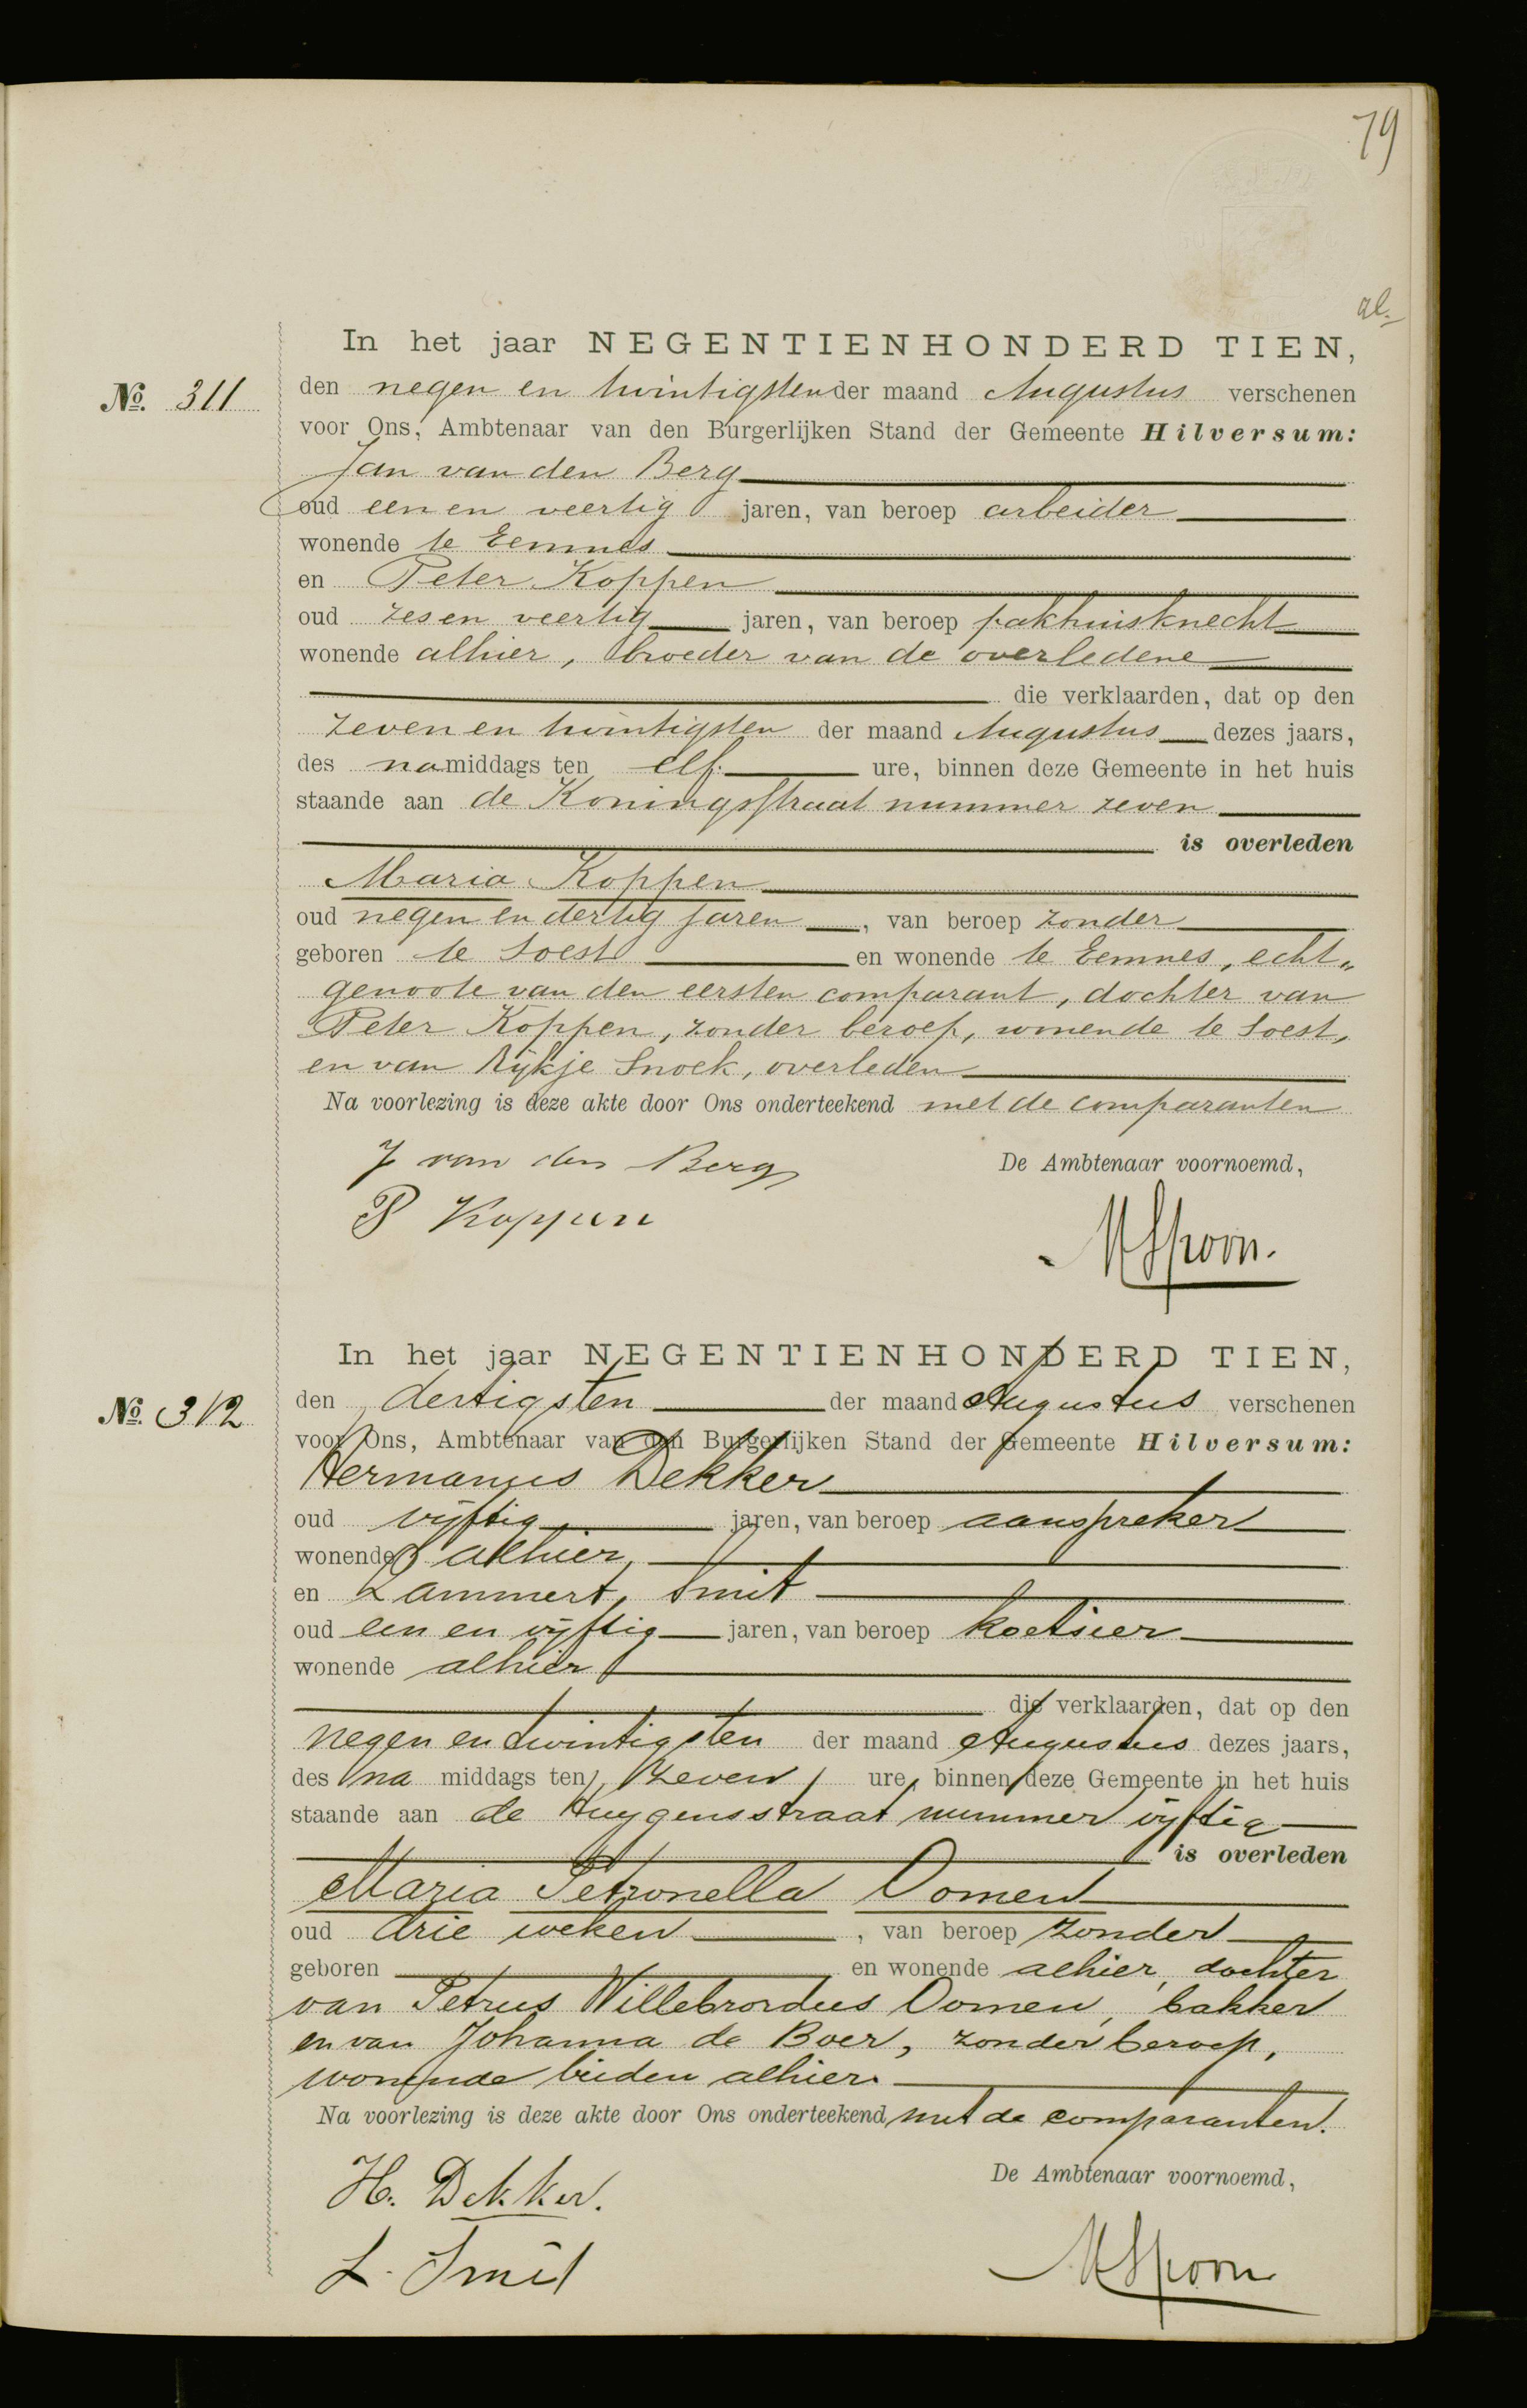 79
al.
In het jaar NEGENTIENHONDERD TIEN,
No. 311
den negen en twintigsten der maand Augustus verschenen
voor Ons, Ambtenaar van den Burgerlijken Stand der Gemeente Hilversum:
Jan van den Berg
oud een en veertig jaren, van beroep arbeider
wonende te Eemnes
en Peter Koppen
oud zes en veertig jaren, van beroep pakhuisknecht
wonende alhier, broeder van de overledene
die verklaarden, dat op den
zeven en twintigsten der maand Augustus dezes jaars,
des namiddags ten elf ure, binnen deze Gemeente in het huis
staande aan de Koningsstraat nummer zeven
is overleden
Maria Koppen
oud negen en dertig jaren, van beroep zonder
geboren te Soest en wonende te Eemnes, echt„
genoote van den eersten comparant, dochter van
Peter Koppen, zonder beroep, wonende te Soest,
en van Rijkje Snoek, overleden
Na voorlezing is deze akte door Ons onderteekend met de comparanten
J van den Berg
De Ambtenaar voornoemd,
P Koppen
MSpoon.
In het jaar NEGENTIENHONDERD TIEN,
No. 312
den dertigsten der maand Augustus verschenen
voor Ons, Ambtenaar van den Burgerlijken Stand der Gemeente Hilversum:
Hermanus Dekker
oud vijftig jaren, van beroep aanspreker
wonende alhier,
en Lammert Smit
oud een en vijftig jaren, van beroep koetsier
wonende alhier
die verklaarden, dat op den
negen en twintigsten der maand Augustus dezes jaars,
des na middags ten zeven ure, binnen deze Gemeente in het huis
staande aan de Huygensstraat nummer vijftig
is overleden
Maria Petronella Oomen
oud drie weken, van beroep zonder
geboren en wonende alhier, dochter
van Petrus Willebrordus Oomen, bakker
en van Johanna de Boer, zonder beroep,
wonende beiden alhier.
Na voorlezing is deze akte door Ons onderteekend met de comparanten.
De Ambtenaar voornoemd,
H. Dekker.
L. Smit
MSpoon